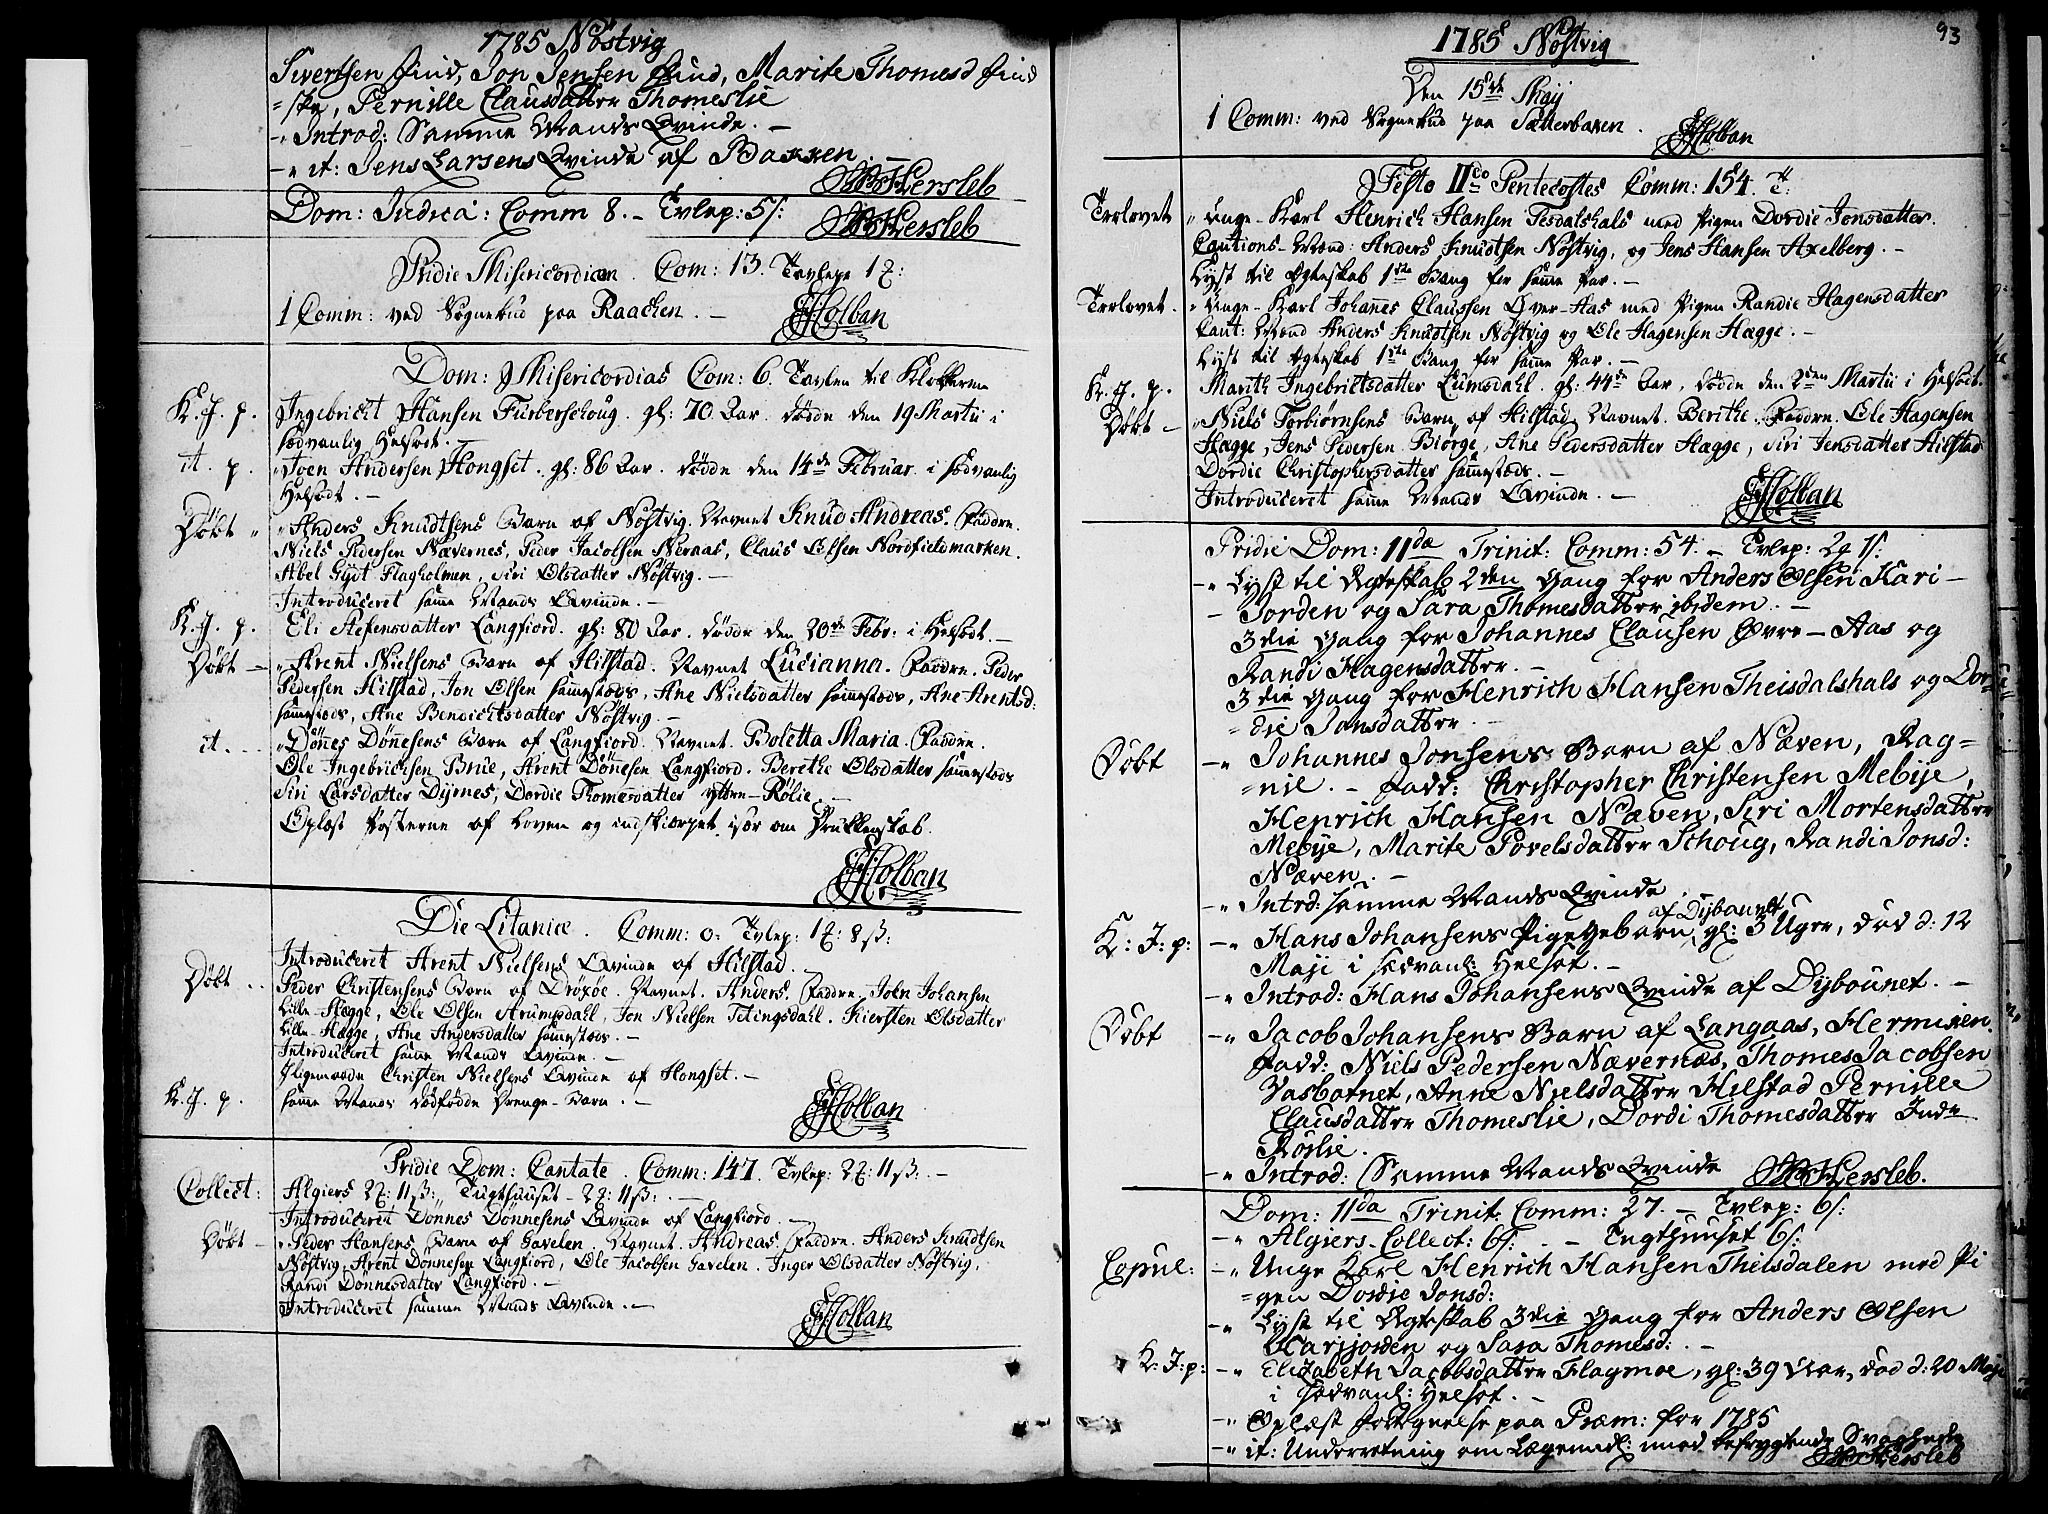 1785 Nöstvig
Sivertsen find, Jon Jensen find, Marite Thomesd find
=ske, Pernille Clausdatter Thomeslie
-„ Introd: Samme Mands Qvinde. -
-„ it: Jens Larsens Qvinde af Bakken. -
Hersleb
Dom: Judica: Comm 8. - Tvlep: 5/: Hersleb
Pridie Misericordiam. Com: 13. Tavlepe 1 :
1 Comm: ved Sognebud paa Raachen. - Holban
Dom: Misericordias Com: 6. Tavlen til Klokkerne
K. J. p. Ingebricht Hansen Furberschoug. gl: 70 Aar. døde den 19 Martii i
sædvanlig Helsodt. -
it. p. „Joen Andersen Hongset. gl: 86 Aar. døde den 14de Februar. i sædvanlig
Helsodt. -
Döbt „ „Anders Knudtsens Barn af Nöstvig. Navnet Knud Andreas. Faddre.
Niels Pedersen Nævernes, Peder Jacobsen Neraas, Claus Olsen Nordfieldmarken.
Abel Gydt Flagholmen, Siri Olsdatter Nöstvig. -
Introduceret samme Mands Qvinde. -
K. J. p. Eli Stefensdatter Langfiord. gl: 80 Aar. døde den 20de Febr: i Helsodt. -
Döbt - „Arent Nielsens Barn af Hilstad. Navnet Lucianna. Faddre. Peder
Pedersen Hilstad, Jon Olsen sammestæds, Ane Nielsdatter sammestæds, Ane Arentsd:
sammestæds, Ane Bendichtsdatter Nöstvig. -
it. „Dönnes Dönnesens Barn af Langfiord. Navnet. Boletta Maria. Faddre.
Ole Ingebrichsen Brue, Arent Dönnesen Langfiord. Berethe Olsdatter sammestæds
Siri Larsdatter Dyrnes, Dordie Thomesdatter yttre-Rölie. -
Oplæst Posterne af Loven og indskiærpet især om Drukkenskab.
Holban
Die Litaniæ. Comm: 0. Tvlep: 1 : 8 ß: -
Introduceret Arent Nielsens Qvinde af Hilstad.
Döbt Peder Christensens Barn af Dröxöe. Navnet. Anders. Faddre. Joen Johansen
Lille-Hægge, Ole Olsen Arumsdahl, Jon Nielsen Tetingsdahl. Kiersten Olsdatter
Lille-Hægge, Ane Andersdatter sammestæds. -
Introduceret samme Mands Qvinde. -
Ligemaade Christen Nielsens Qvinde af Hongset. -
K. J. p. samme Mands dødfødde Drenge-Barn. - Holban
Pridie Dom: Cantate. Comm: 147. Tvlep: 2 : 11 ß: -
Collect: Algiers 2 : 11 ß: „ Tugthuuset - 2 : 11 ß: -
Introduceret Dönnes Dönnesens Qvinde af Langfiord. -
Döbt - „Peder Hansens Barn af Gavelen. Navnet. Andreas. Faddre. Anders Knudtsen
Nöstvig, Arent Dönnesen Langfiord, Ole Jacobsen Gavelen. Inger Olsdatter Nöstvig,
Randi Donnesdatter Langfiord. -
Introduceret samme Mands Qvinde. - Holban
93
1785 Nöstvig
Den 15de Maij
1 Comm: ved Sognebud paa Sætterbaxen. Holban
Festo IIdo Pentecostes Comm: 154. T:
Trolovet „ Unge-Karl Henrich Hansen Tesdalshals med Pigen Dordie Jonsdatter.
Cautions-Mænd: Anders Knudtsen Nöstvig, og Jens Hansen Axelberg. -
Lyst til Ægteskab 1ste Gang for samme Par. -
Trolovet. „ Unge-Karl Johannes Claussen Over-Aas med Pigen Randie Hagensdatter
Caut: Mænd Anders Knudtsen Nöstvig og Ole Hagensen Hægge. -
Lyst til Ægteskab 1ste Gang for samme Par. -
K. J. p. Marith Ingebrictsdatter Lumsdahl. gl: 44de Aar, døde den 2den Martii i Helsodt.
Döbt - „Niels Torbiörnsens Barn af Hilstad Navnet. Berithe. Faddre. Ole Hagensen
Hægge, Jens Pedersen Biörge, Ane Pedersdatter Hægge, Siri Jensdatter Hilstad
Dordie Christophersdatter sammestæds. -
Introduceret samme Mands Qvinde. - Holban
Pridie Dom: 11da Trinit: Comm: 54. - Tvlep: 2 1/:
-„ Lyst til Ægteskab 2den Gang for Anders Olsen Kari-
- Jorden og Sara Thomesdatter ibidem. -
3die Gang for Johannes Clausen Övre-Aas og
Randi Hagensdatter. -
3die Gang for Henrich Hansen Theisdalshals og Dor-
=die Jonsdatter. -
Döbt -„ Johannes Jonsens Barn af Næven, Rag=
=nil. - Fadd: Christopher Christensen Mebye,
Henrich Hansen Næven, Siri Mortensdatter
Mebye, Marite Povelsdatter Schoug, Randi Jonsd:
Næven. -
-„ Introd: samme Mands Qvinde.
af Dybounet
K: J: p: -„ Hans Johansens Pigegebarn, gl: 3 Uger, død d: 12
Maji i sædvanl: Helsot. -
-„ Introd: Hans Johansens Qvinde af Dybounet. -
Döbt -„ Jacob Johansens Barn af Langaas, Hermiken.
Fadd: Niels Pedersen Nævernæs, Thomes Jacobsen
Vasbotnet, Anne Nielsdatter Hilstad Pernille
Clausdatter Thomeslie, Dordi Thomesdatter Inde
Röslie.
-„ Introd: Samme Mands Qvinde Hersleb.
Dom: 11da Trinit. Comm: 27. - Tvlep: 6/:
-„ Algiers-Collect: 6/: - Tugthuuset 6/:
Copul: -„ Unge Karl Henrich Hansen Theisdalen med Pi
=gen Dordie Jonsd:
-„ Lyst til Ægteskab 3die Gang for Anders Olsen
Karijorden og Sara Thomesd: -
K: J: p: -„ Elizabeth Jacobsdatter Flagmoe, gl: 39 Aar, død d: 20 Maji
i sædvanl: Helsot. -
-„ Oplæst Fortegnelse paa Præm: for 1785
-„ it: Underretning om Lægemdl: mod befrygtende Svaghede
Hersleb